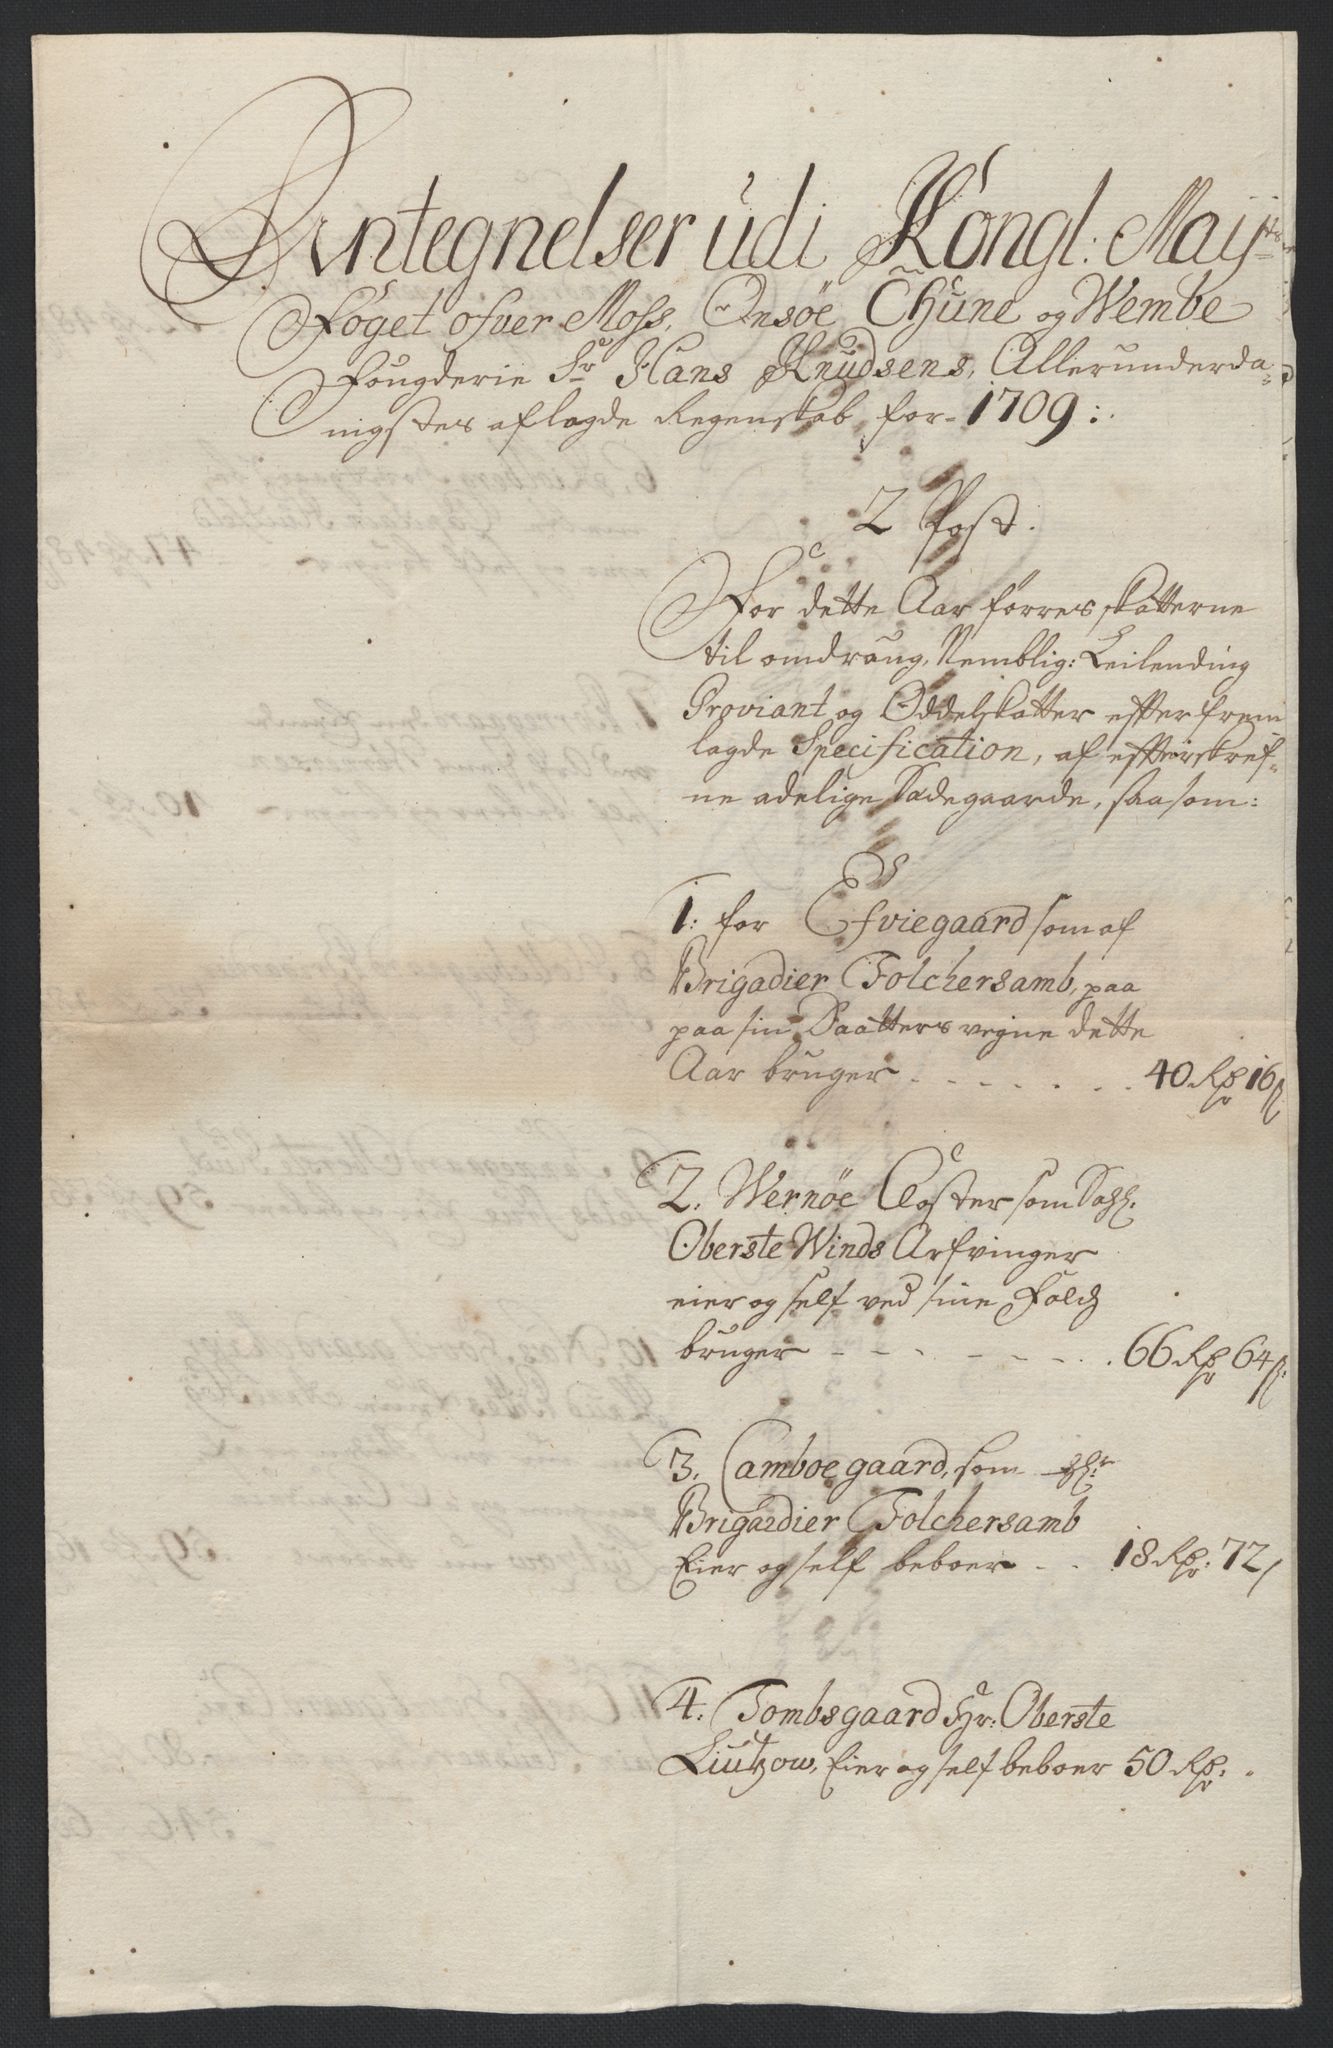 Antegnelser udi Kongl: Maijts
Foget ofver Moss, Onsöe Thune og Wembe
Fougderie Sr Hans Knudsens, Allerunderda-
nigstes aflagde Regenskab, for 1709:
2 Post.
For dette Aar förres skatterne
til omdraug, Nemblig: Leilending
Proviant og Oddelskatter efter frem
lagde Specification, af efterskref-
ne adelige Sædegaarde, saasom:
1: for Efviegaard som af
Brigadier Tolchersamb, paa
paa sin Daatters vegne dette
Aar bruger - - - - - - 40 Rdr 16 s
2. Wernöe Closter som Sahl:
Oberste Winds Arfvinger
eier og self ved sine Folch
bruger - - - - - - 66 Rdr 64 s:
3. Camboegaard, som Hr:
Brigadier Tolchersamb
Eier og self beboer - - 18 Rdr: 72 s
4. Tombsgaard Hr: Oberste
Liutzow, Eier og self beboer 50 Rdr: -